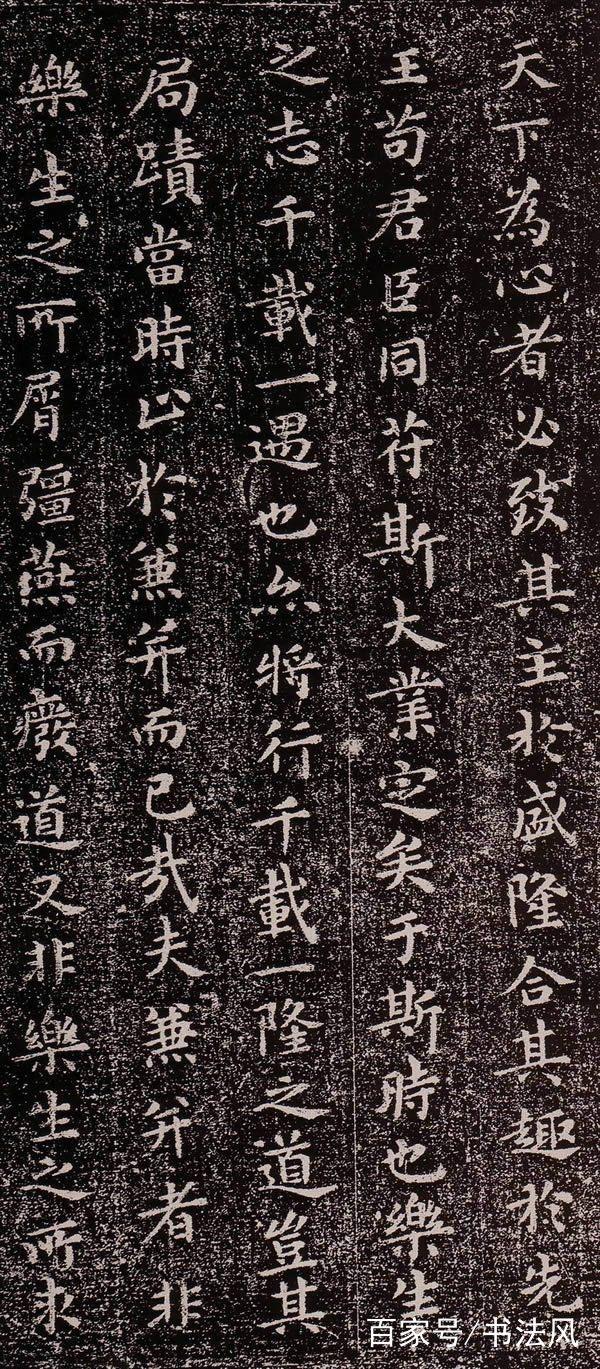 天下為心者必致其主於盛隆合其趣於先
王苟君臣同符斯大業定矣于斯時也樂生
之志千載一遇也亦將行千載一隆之道豈其
局蹟當時止於兼并而已哉夫兼并者非
樂生之所屑彊燕而廢道又非樂生之所求
百家号/书法风